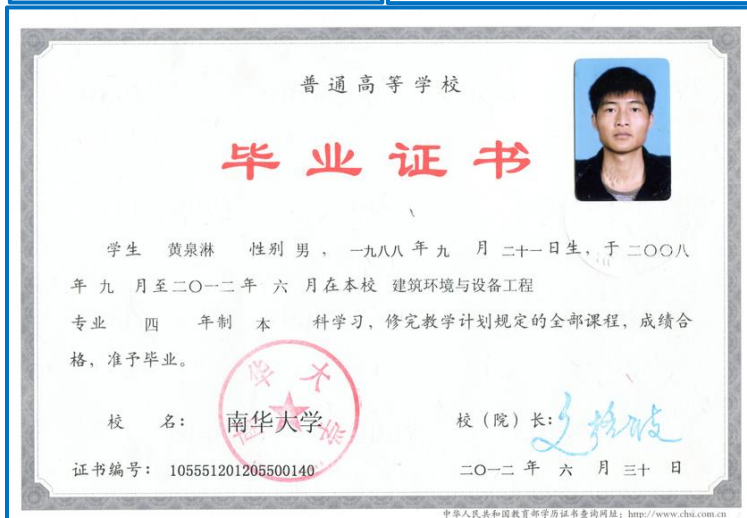 普通高等学校
毕业证书
学生 黄泉淋 性别 男 ， 一九八八 年 九 月 二十一 日生，于 二〇〇八
年 九 月至二〇一二 年 六 月在本校 建筑环境与设备工程
专业 四 年制 本 科学习，修完教学计划规定的全部课程，成绩合
格，准予毕业。
校 名： 南华大学 校（院）长：
证书编号： 105551201205500140 二〇一二 年 六 月 三十 日
中华人民共和国教育部学历证书查询网址：http://www.chsi.com.cn